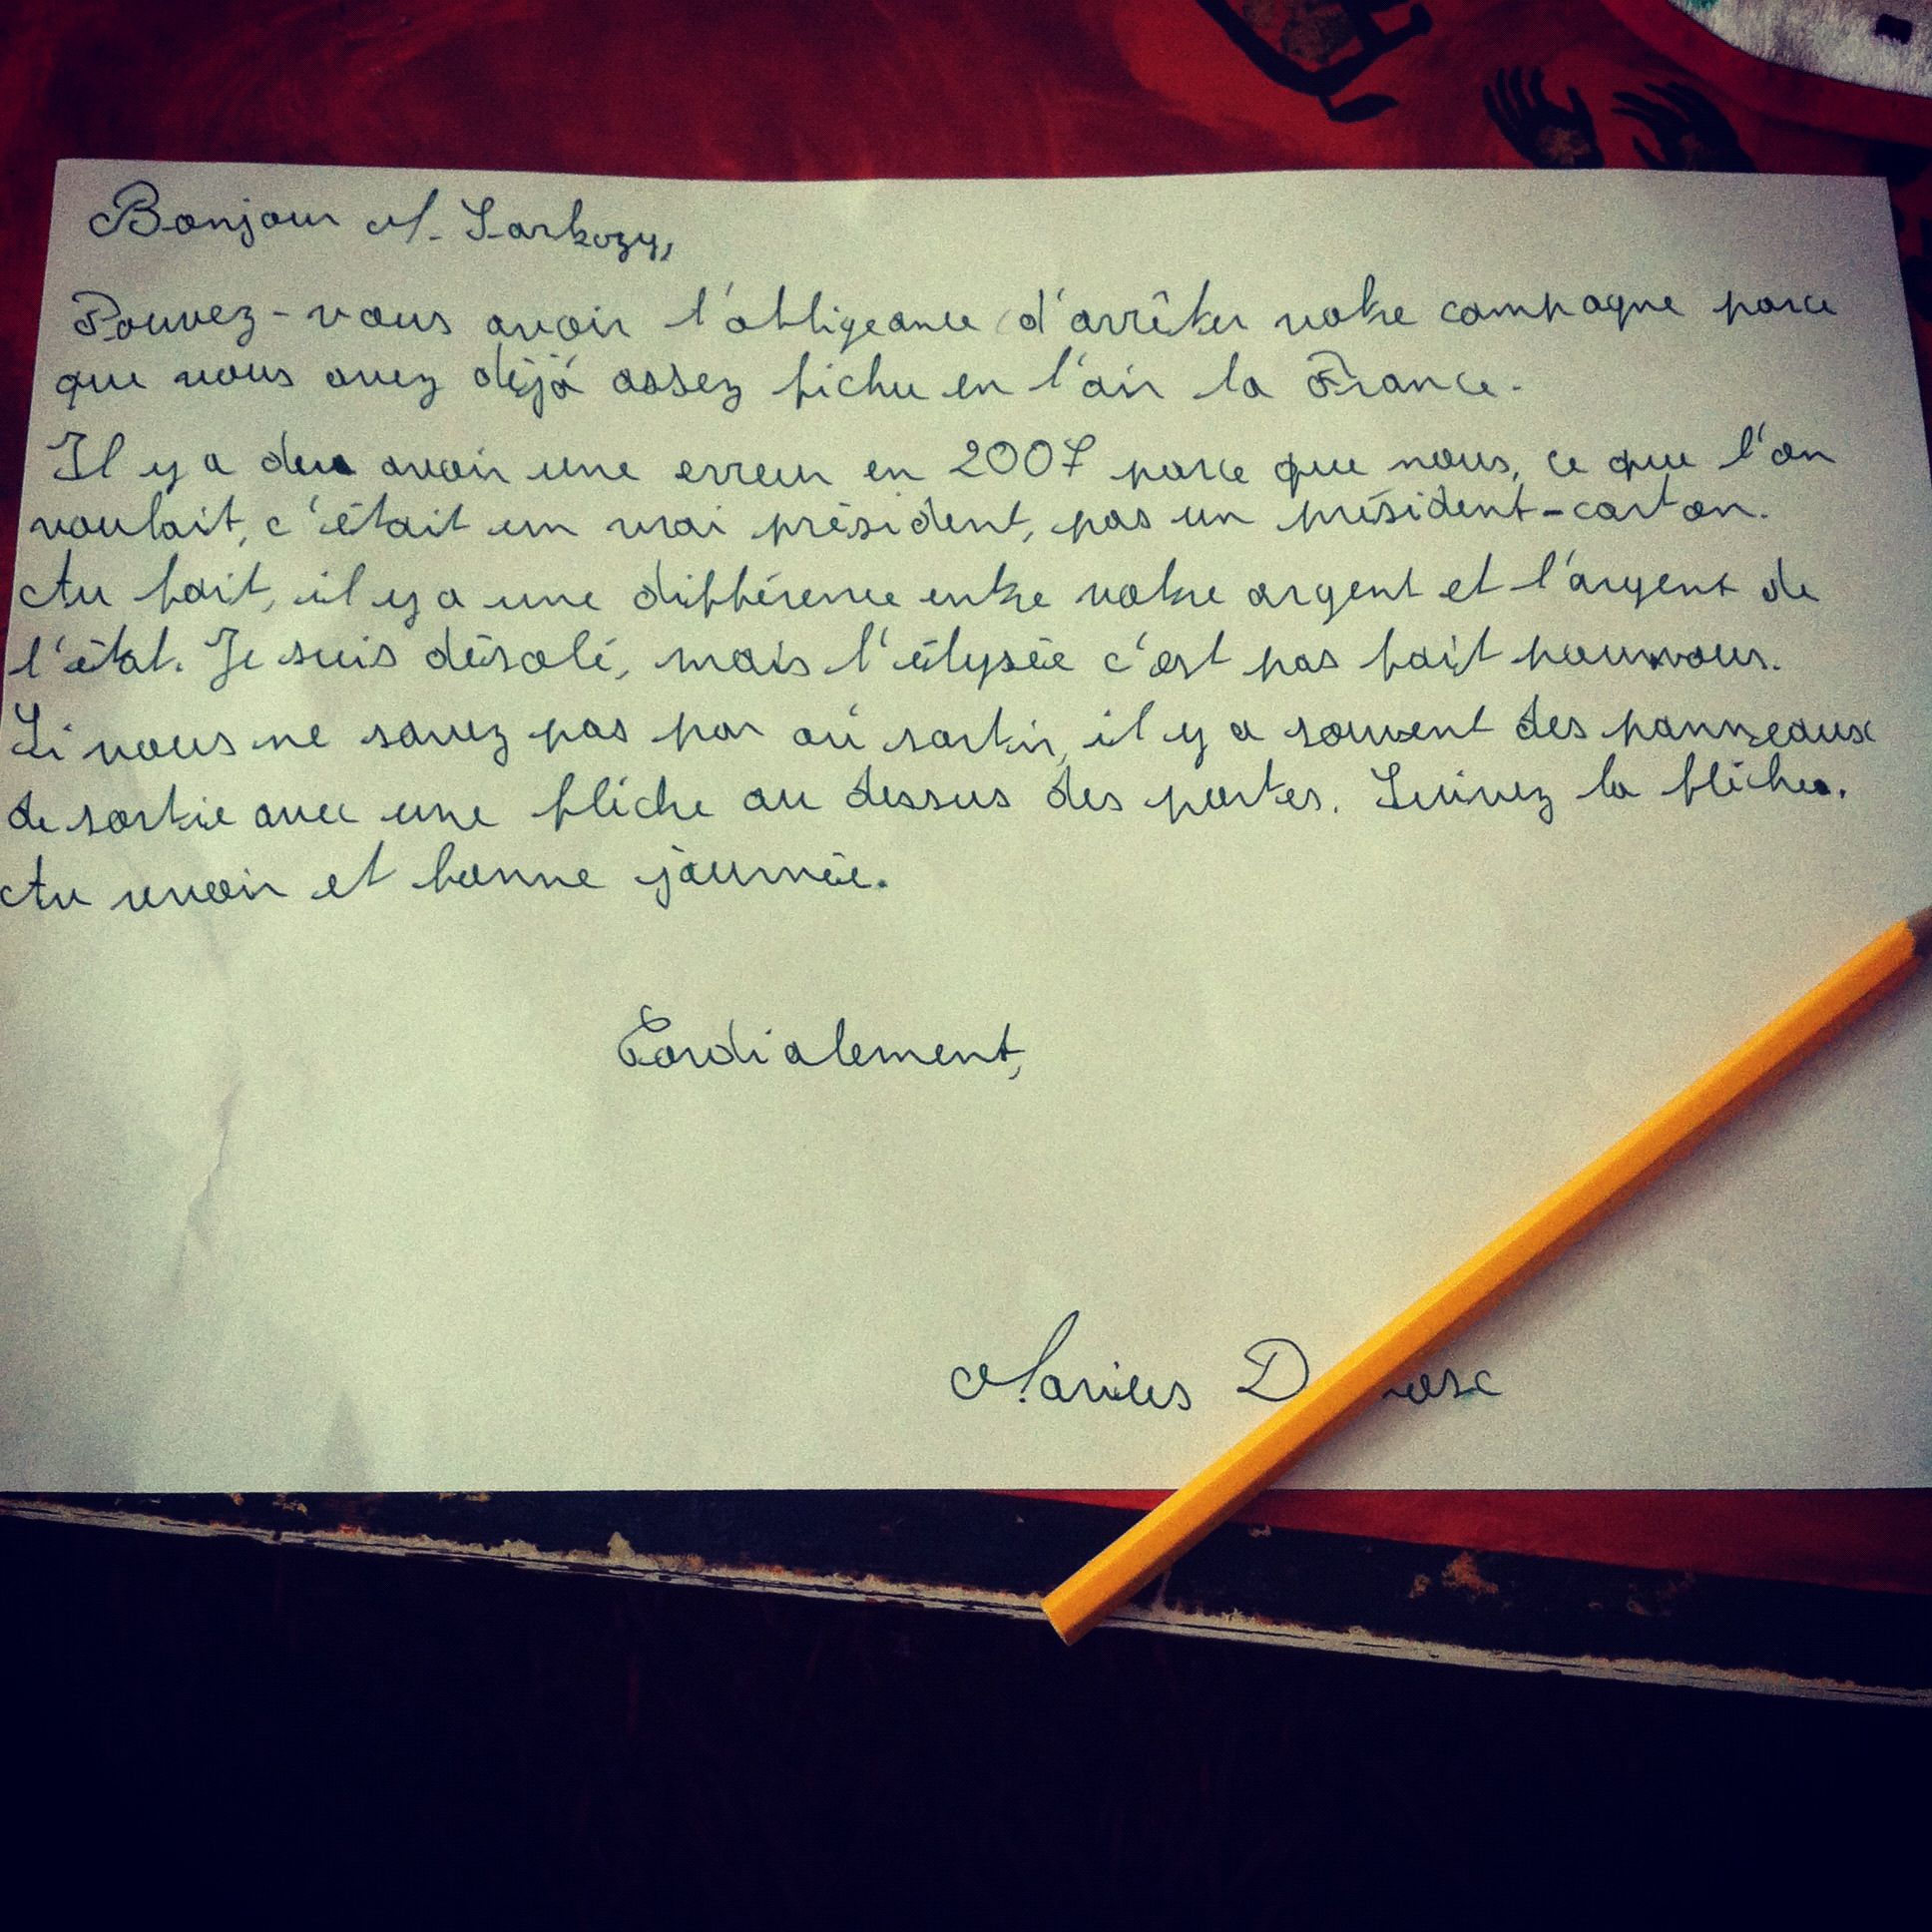 Bonjour M. Sarkozy,
Pouvez-vous avoir l'obligeance d'arrêter votre campagne parce
que vous avez déjà assez fichu en l'air la France.
Il y a du avoir une erreur en 2007 parce que nous, ce que l'on
voulait, c'était un vrai président, pas un président-carton.
Au fait, il y a une différence entre votre argent et l'argent de
l'état. Je suis désolé, mais l'élysée c'est pas fait pour vous.
Si vous ne savez pas par où sortir, il y a souvent des panneaux
de sortie avec une flèche au dessus des portes. Suivez la flèche.
Au revoir et bonne journée.
Cordialement,
Marius D